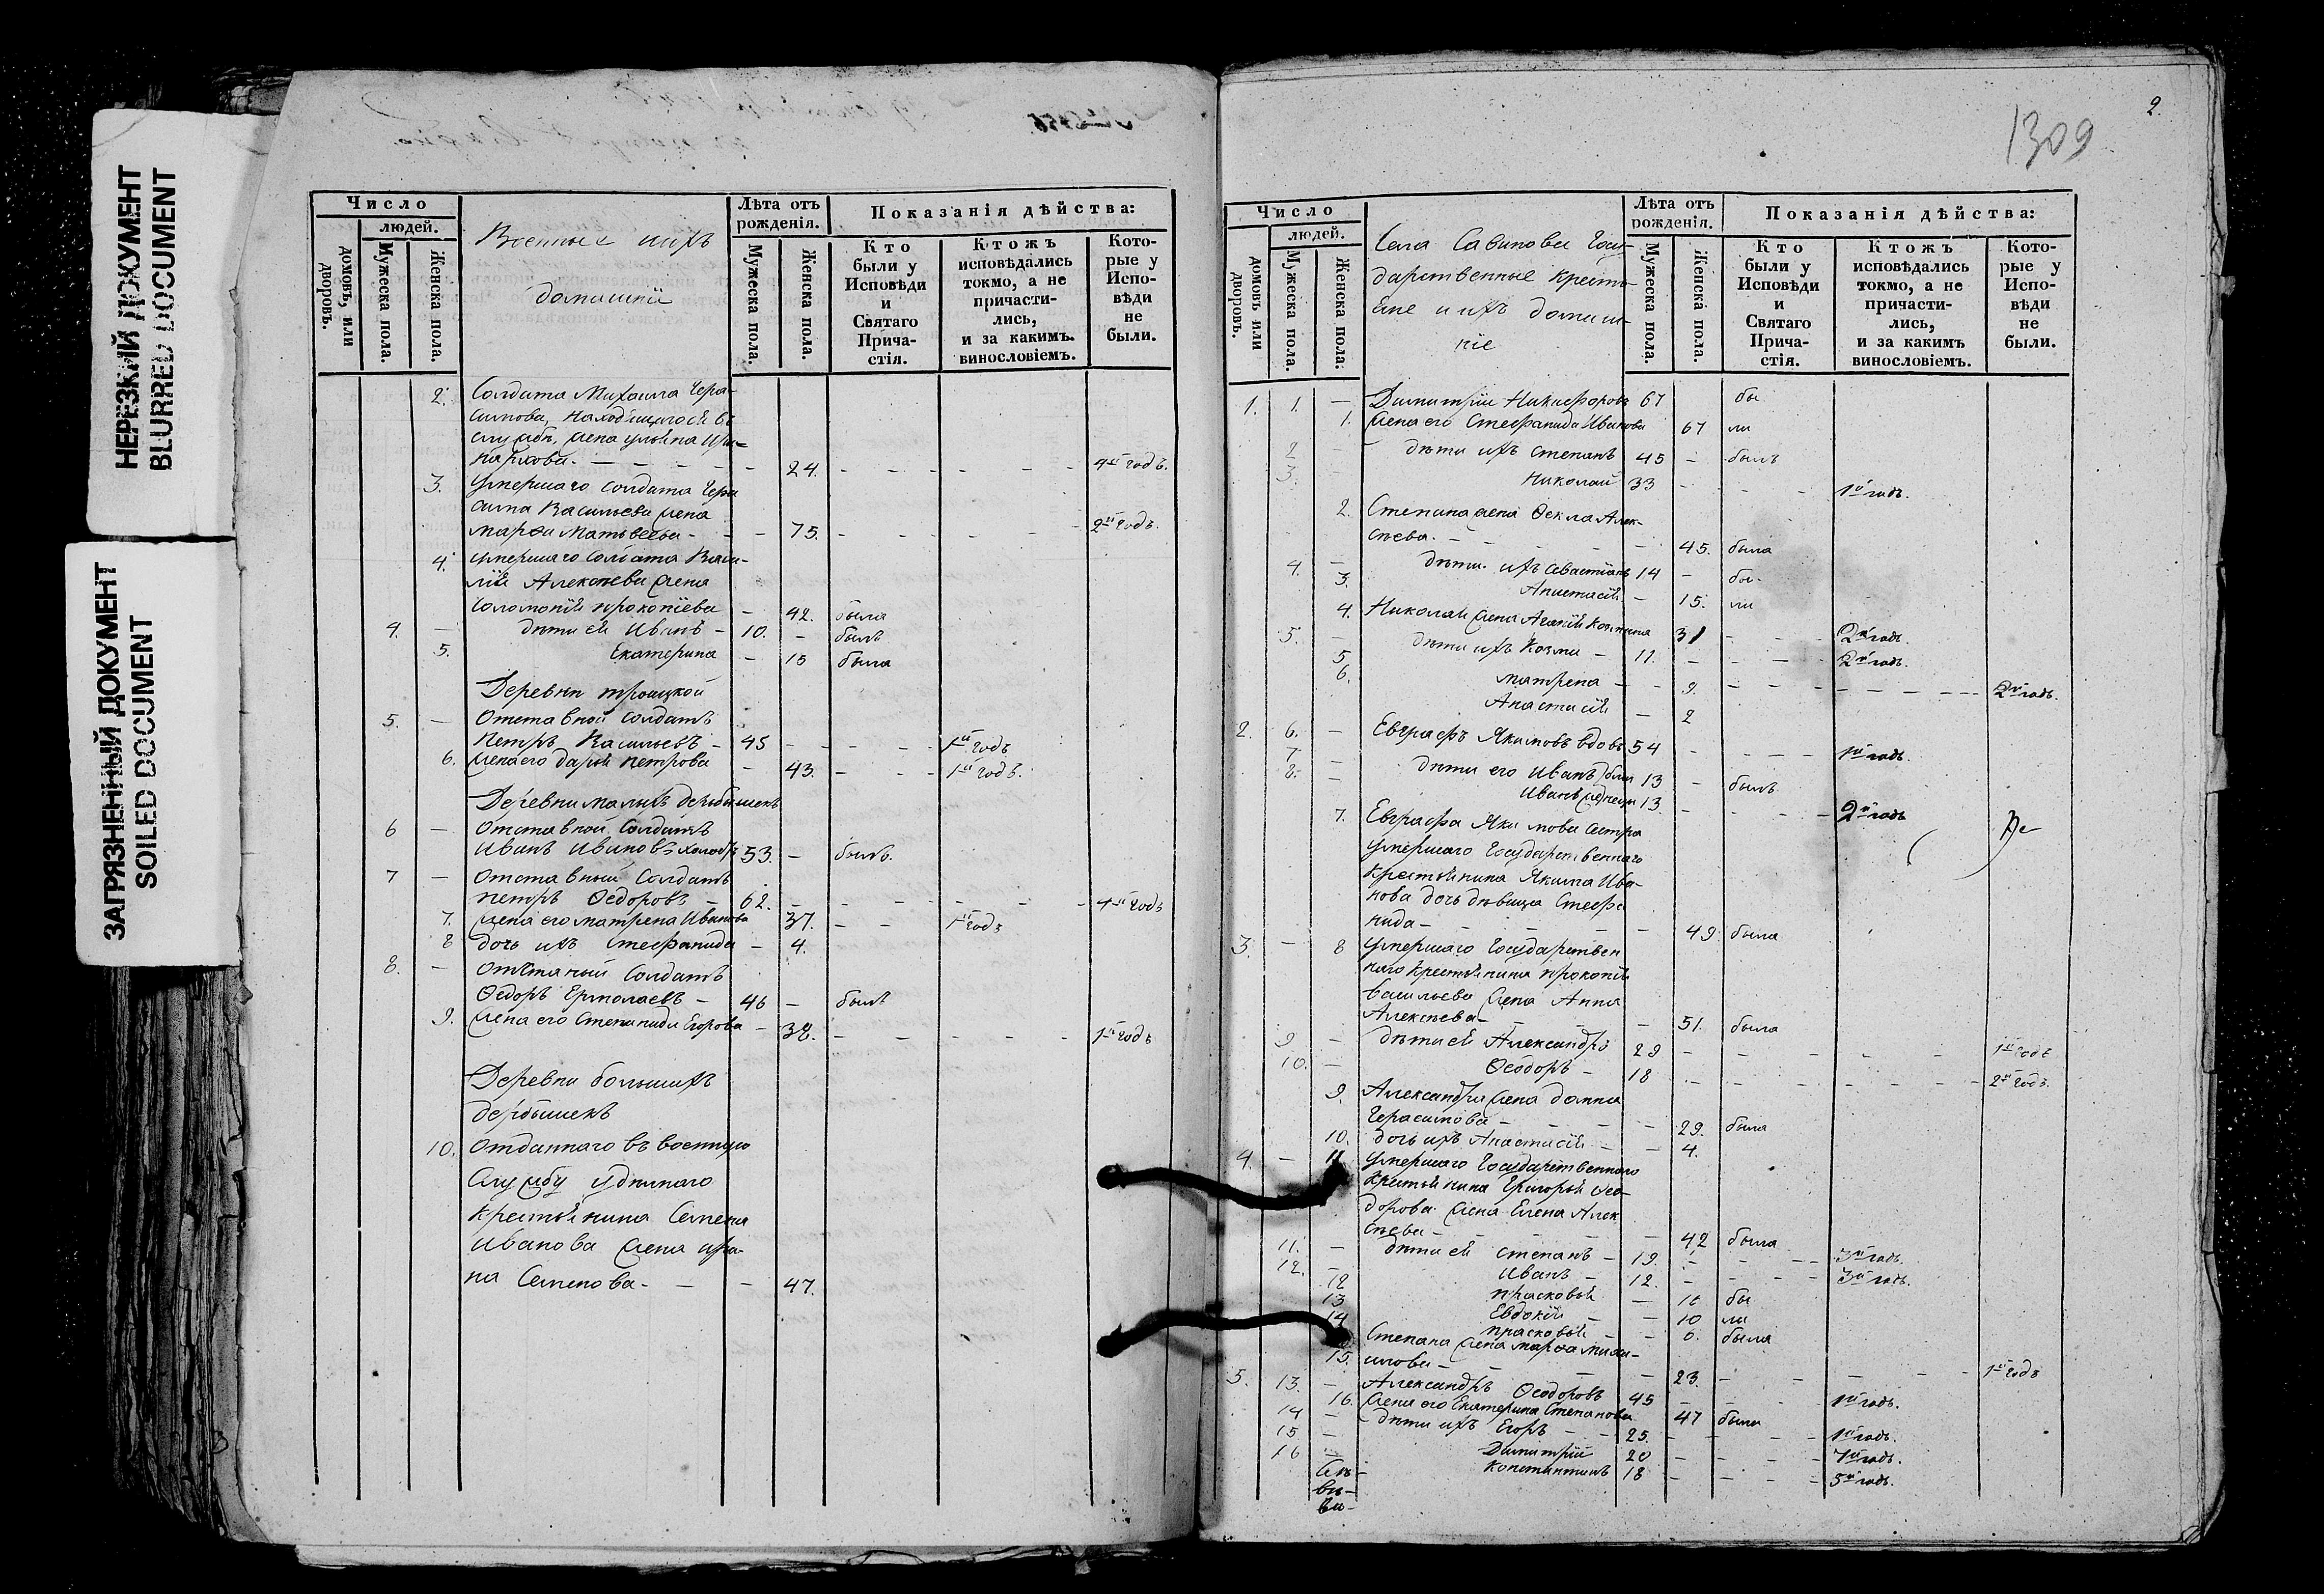 НЕРЕЗКИЙ ДОКУМЕНТ
BLURRED DOCUMENT
ЗАГРЯЗНЕННЫЙ ДОКУМЕНТ
SOILED DOCUMENT
Число
людей.
домовъ, или дворовъ.
Мужеска пола.
Женска пола.
Военные и ихъ
домашніи
Лѣта отъ рожденія.
Мужеска пола.
Женска пола.
Показанія дѣйства:
Кто были у Исповѣди и Святаго Прича-стія.
Ктожъ исповѣдались токмо, а не причасти-лись, и за какимъ винословіемъ.
Кото-рые у Испо-вѣди не были.
2. Солдата Михаила Гера-
симова, находящагося въ
службѣ, жена Ульяна
24. 4й годъ.
3. Умершаго солдата Гера
сима Васильева жена
Марфа Матвеева 75. 2й годъ.
4. Умершаго солдата Васи-
лія Алексѣева жена
Соломонія Прокопіева 42. была
4. дѣти ея Иванъ 10. былъ
5. Екатерина 15 была
Деревни Троицкой
5. Отставной солдатъ
Петръ Васильевъ 45 1й годъ
6. жена его Дарья Петрова 43. 1й годъ.
Деревни Малыхъ Дербышекъ
6 Отставной солдатъ
Иванъ Ивановъ 53. былъ.
7 Отставный солдатъ
Петръ Ѳедоровъ 62. 4й годъ
7. жена его Матрена Иванова 37. 1й годъ
8 дочь ихъ Стефанида 4.
8. Отставный солдатъ
Ѳедоръ Ермолаевъ 46 былъ
9. жена его Степанида Егорова 38. 1й годъ
Деревни Большихъ
Дербышекъ
10. Отданнаго въ военную
службу удѣльнаго
крестьянина Семена
Иванова жена Ири-
на Семенова 47.
2.
1309
Число
людей.
домовъ или дворовъ.
Мужеска пола.
Женска пола.
Села Савинова Госу-
дарственные крестья-
не и ихъ домаш-
ніе
Лѣта отъ рожденія.
Мужеска пола.
Женска пола.
Показанія дѣйства:
Кто были у Исповѣди и Святаго Прича-стія.
Ктожъ исповѣдались токмо, а не причасти-лись, и за какимъ винословіемъ.
Кото-рые у Испо-вѣди не были.
1. 1. Димитрій Никифоровъ 67 бы
1. жена его Стефанида Иванова 67 ли
2 дѣти ихъ Степанъ 45 былъ
3. Николай 33 1й годъ.
2. Степана жена Ѳекла Алек-
сѣева 45. была
4. дѣти ихъ Севастіанъ 14 бы-
3. Анастасія 15. ли
4. Николая жена Агафія Козмина 31 2й годъ.
5. дѣти ихъ Козма 11. 2й годъ.
5 Матрена 9. 2й годъ.
6. Анастасія 2
2. 6. Евграфъ Якимовъ вдовъ 54 1й годъ.
7 дѣти его Иванъ 13 былъ
8. Иванъ 13. 2й годъ
7. Евграфа Якимова сестра
умершаго Государственнаго
крестьянина Якима Ива-
нова дочь дѣвица Стефа
нида 49 была
3. 8 Умершаго Государствен
наго крестьянина Прокопія
Васильева жена Анна
Алексѣева 51. была
9 дѣти ея Александръ 29 1й годъ
10. Ѳеодоръ 18 2й годъ.
9. Александра жена Домна
Герасимова 29. была
10. дочь ихъ Анастасія 4.
4. 11 Умершаго Государственнаго
крестьянина Григорья Ѳео-
дорова жена Елена Алек
сѣева 42 была
11. дѣти ея Степанъ 19. 3й годъ.
12. Иванъ 12. 3й годъ.
12 Прасковья 16 бы
13 Евдокія 10 ли
14 Прасковья 6. была
15. Степана жена Марфа Миха-
илова 23. 1й годъ
5. 13. Александръ Ѳеодоровъ 45 1й годъ.
16. жена его Екатерина Степанова 47 была
14 дѣти ихъ Егоръ 25. 1й годъ.
15 Димитрій 20 1й годъ.
16 Константинъ 18 5й годъ.